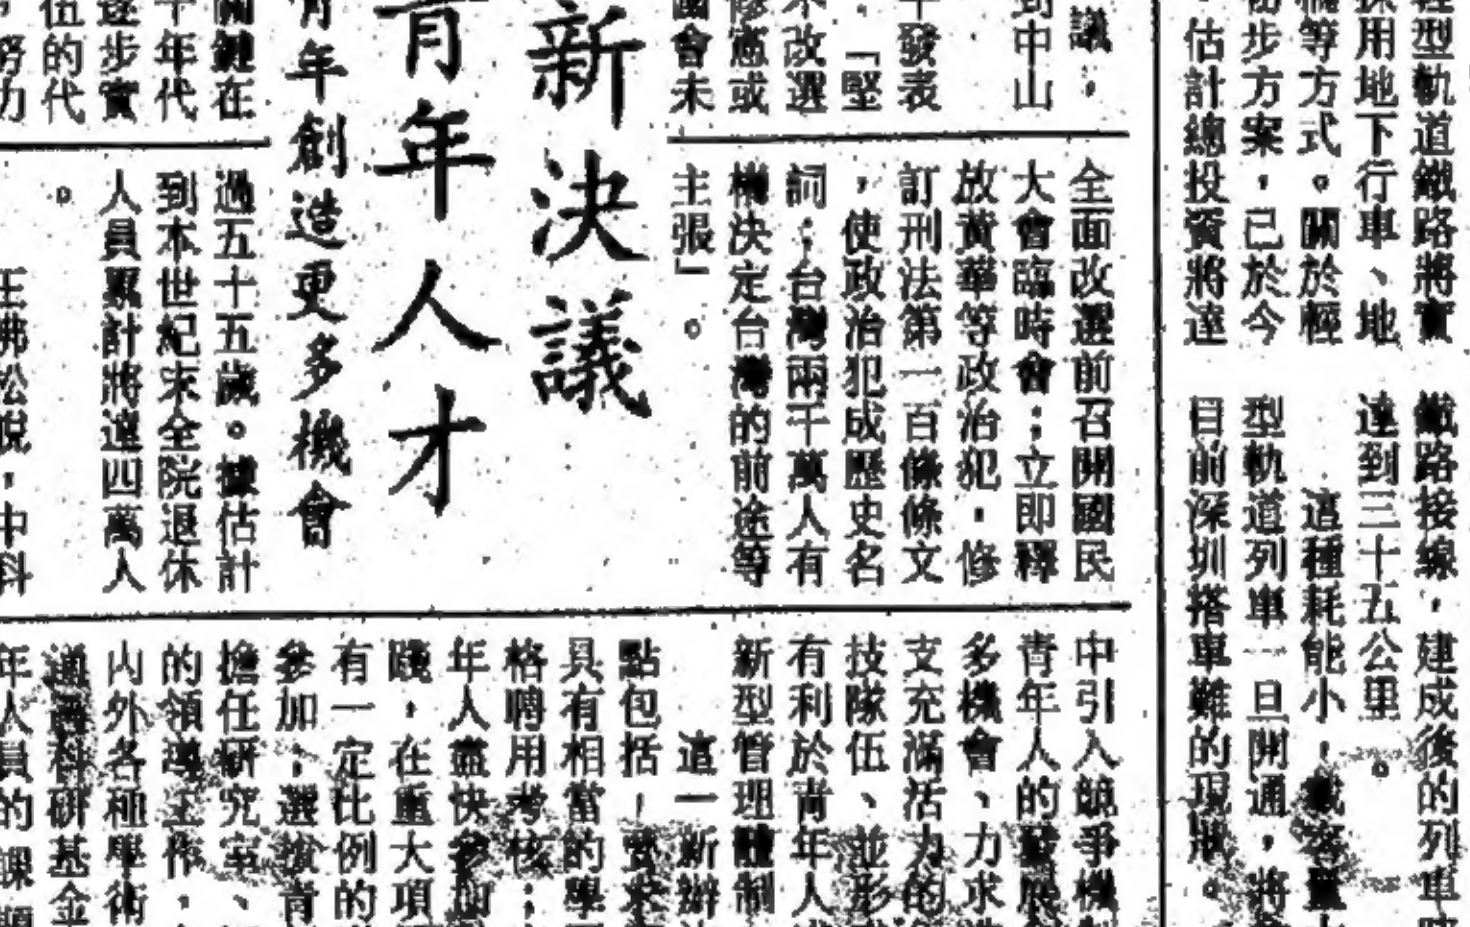 輕型軌道鐵路將實
採用地下行車、地
機等方式。關於輕
初步方案，已於今
估計總投資將達
鐵路接線，建成後的列車
達到三十五公里。
這種耗能小，載客量
型軌道列車一旦開通，將
目前深圳搭車難的現狀。
議，
到中山
發表
「堅
不改選
修憲或
國會未
全面改選前召開國民
大會臨時會；立即釋
放黃華等政治犯，修
訂刑法第一百條條文
，使政治犯成歷史名
詞；台灣兩千萬人有
權決定台灣的前途等
主張」。
新決議
青年人才
青年創造更多機會
關鍵在
年代
逐步實
伍的代
努力
過五十五歲。據估計
到本世紀末全院退休
人員累計將達四萬人
。
王佛松說，中科
中引入競爭機制
青年人的發展
多機會、力求造
支充滿活力的
技隊伍、並形成
有利於青年人
新型管理體制
這一新辦
點包括，要求
具有相當的學
格聘用考核；
年人盡快參加
踐，在重大項
有一定比例的
參加；選拔青
擔任研究室、
的領導工作，
內外各種學術
通過科研基金
年人員的課題